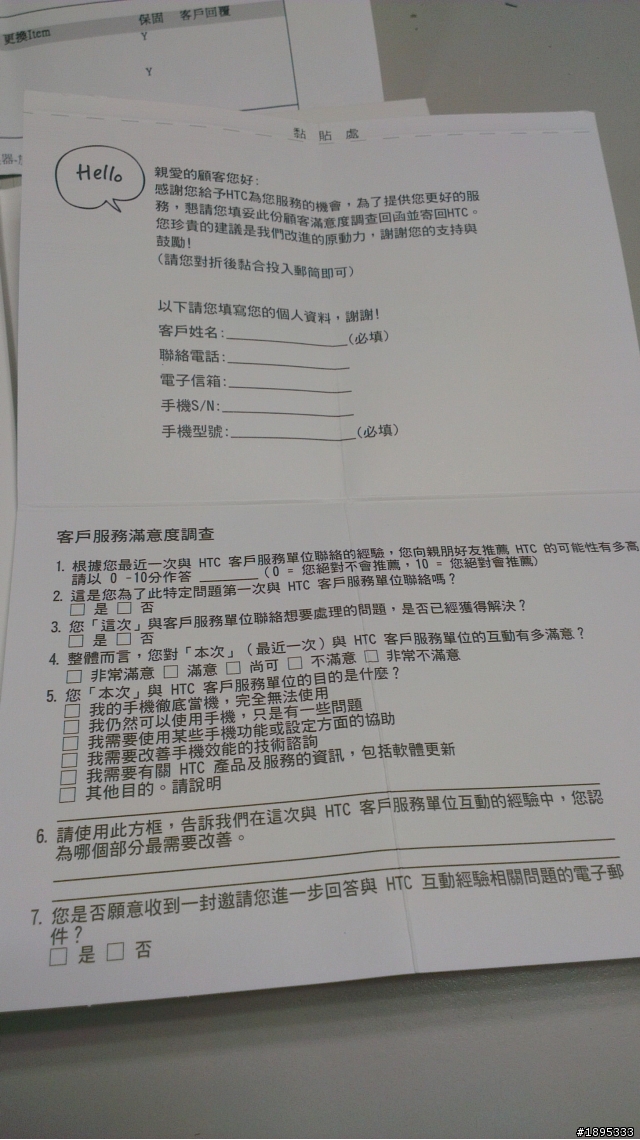 更換Item 保固 客戶回覆
Y
Y
黏 貼 處
Hello
親愛的顧客您好:
感謝您給予HTC為您服務的機會，為了提供您更好的服
務，懇請您填妥此份顧客滿意度調查回函並寄回HTC。
您珍貴的建議是我們改進的原動力，謝謝您的支持與
鼓勵!
(請您對折後黏合投入郵筒即可)
以下請您填寫您的個人資料，謝謝!
客戶姓名:____________(必填)
聯絡電話:____________
電子信箱:____________
手機S/N:____________
手機型號:____________(必填)
客戶服務滿意度調查
1. 根據您最近一次與 HTC 客戶服務單位聯絡的經驗，您向親朋好友推薦 HTC 的可能性有多高
請以 0 -10分作答 ______ (0 = 您絕對不會推薦，10 = 您絕對會推薦)
2. 這是您為了此特定問題第一次與 HTC 客戶服務單位聯絡嗎？
□ 是 □ 否
3. 您「這次」與客戶服務單位聯絡想要處理的問題，是否已經獲得解決？
□ 是 □ 否
4. 整體而言，您對「本次」（最近一次）與 HTC 客戶服務單位的互動有多滿意？
□ 非常滿意 □ 滿意 □ 尚可 □ 不滿意 □ 非常不滿意
5. 您「本次」與 HTC 客戶服務單位的目的是什麼？
□ 我的手機徹底當機，完全無法使用
□ 我仍然可以使用手機，只是有一些問題
□ 我需要使用某些手機功能或設定方面的協助
□ 我需要改善手機效能的技術諮詢
□ 我需要有關 HTC 產品及服務的資訊，包括軟體更新
□ 其他目的。請說明
6. 請使用此方框，告訴我們在這次與 HTC 客戶服務單位互動的經驗中，您認
為哪個部分最需要改善。
7. 您是否願意收到一封邀請您進一步回答與 HTC 互動經驗相關問題的電子郵
件？
□ 是 □ 否
#1895333